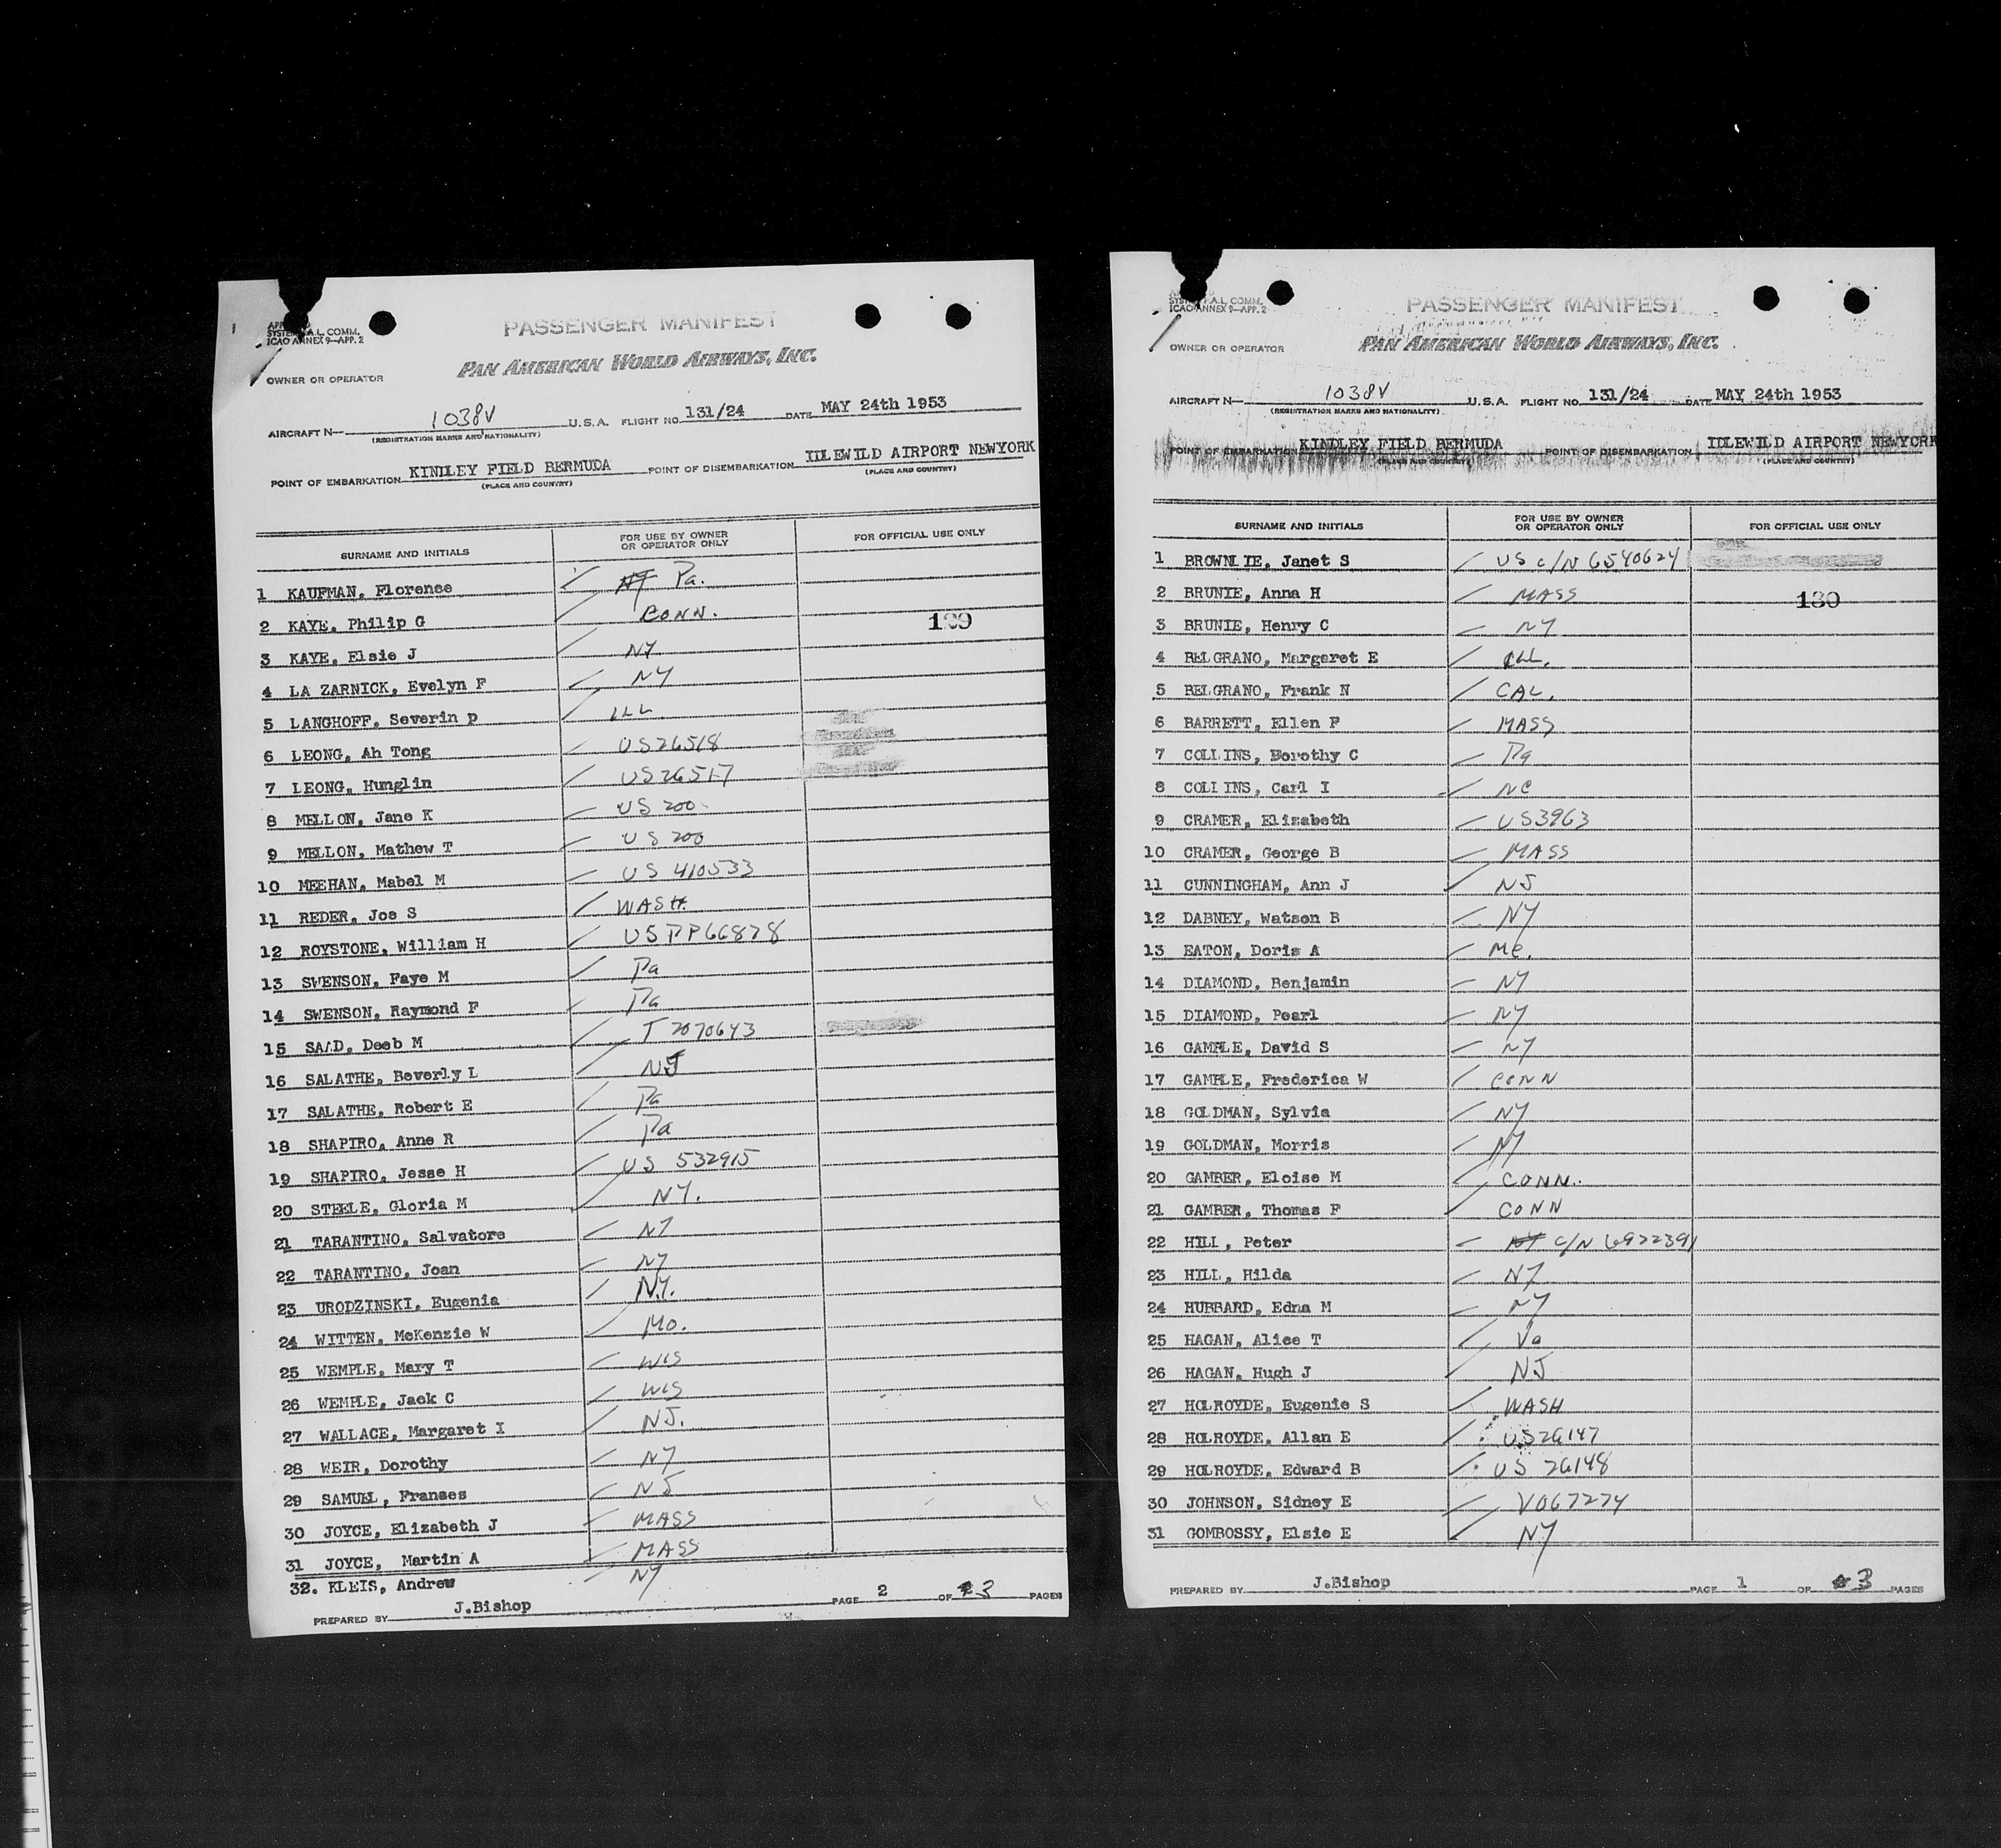 SYSTEM F.A.L. COMM.
ICAO ANNEX 9—APP. 2
PASSENGER MANIFEST
OWNER OR OPERATOR
PAN AMERICAN WORLD AIRWAYS, INC.
AIRCRAFT N— 1038V U.S.A. FLIGHT NO. 131/24 DATE MAY 24th 1953
(REGISTRATION MARKS AND NATIONALITY)
POINT OF EMBARKATION KINDLEY FIELD BERMUDA POINT OF DISEMBARKATION IDLEWILD AIRPORT NEWYORK
(PLACE AND COUNTRY) (PLACE AND COUNTRY)
SURNAME AND INITIALS FOR USE BY OWNER OR OPERATOR ONLY FOR OFFICIAL USE ONLY
1 KAUFMAN, Florense NY Pa.
2 KAYE, Philip G CONN.
3 KAYE, Elsie J NY
4 LA ZARNICK, Evelyn F NY
5 LANGHOFF, Severin p ILL
6 LEONG, Ah Tong US26518
7 LEONG, Hunglin US26517
8 MELLON, Jane K US 200
9 MELLON, Mathew T US 200
10 MEEHAN, Mabel M US 410533
11 REDER, Joe S WASH.
12 ROYSTONE, William H US PP66878
13 SWENSON, Faye M Pa
14 SWENSON, Raymond F Pa
15 SAAD, Deeb M T 2070643
16 SALATHE, Beverly L NJ
17 SALATHE, Robert E Pa
18 SHAPIRO, Anne R Pa
19 SHAPIRO, Jesse H US 532915
20 STEELE, Gloria M NY.
21 TARANTINO, Salvatore NY
22 TARANTINO, Joan NY
23 URODZINSKI, Eugenia N.Y.
24 WITTEN, McKenzie W Mo.
25 WEMPLE, Mary T WIS
26 WEMPLE, Jack C WIS
27 WALLACE, Margaret I NJ.
28 WEIR, Dorothy NY
29 SAMUEL, Franses NJ
30 JOYCE, Elizabeth J MASS
31 JOYCE, Martin A MASS
32. KLEIS, Andrew NY
PREPARED BY J.Bishop PAGE 2 OF 3 PAGES
SYSTEM F.A.L. COMM.
ICAO ANNEX 9—APP. 2
PASSENGER MANIFEST
OWNER OR OPERATOR
PAN AMERICAN WORLD AIRWAYS, INC.
AIRCRAFT N— 1038V U.S.A. FLIGHT NO. 131/24 DATE MAY 24th 1953
(REGISTRATION MARKS AND NATIONALITY)
POINT OF EMBARKATION KINDLEY FIELD BERMUDA POINT OF DISEMBARKATION IDLEWILD AIRPORT NEWYORK
(PLACE AND COUNTRY) (PLACE AND COUNTRY)
SURNAME AND INITIALS FOR USE BY OWNER OR OPERATOR ONLY FOR OFFICIAL USE ONLY
1 BROWNLIE, Janet S US C/N 6540624
2 BRUNIE, Anna H MASS 130
3 BRUNIE, Henry C NY
4 BELGRANO, Margaret E
5 BELGRANO, Frank N CAL.
6 BARRETT, Ellen F MASS
7 COLLINS, Dorothy C Pa
8 COLLINS, Carl I NC
9 CRAMER, Elizabeth US3963
10 CRAMER, George B MASS
11 CUNNINGHAM, Ann J NJ
12 DABNEY, Watson B NY
13 EATON, Doris A Me.
14 DIAMOND, Benjamin NY
15 DIAMOND, Pearl NY
16 GAMBLE, David S NY
17 GAMBLE, Frederica W CONN
18 GOLDMAN, Sylvia NY
19 GOLDMAN, Morris NY
20 GAMBER, Eloise M CONN.
21 GAMBER, Thomas F CONN
22 HILL, Peter NY C/N 6922391
23 HILL, Hilda NY
24 HUBBARD, Edna M NY
25 HAGAN, Alice T Va
26 HAGAN, Hugh J NJ
27 HOLROYDE, Eugenie S WASH
28 HOLROYDE, Allan E US26147
29 HOLROYDE, Edward B US 26148
30 JOHNSON, Sidney E V067274
31 GOMBOSSY, Elsie E NY
PREPARED BY J.Bishop PAGE 1 OF 3 PAGES